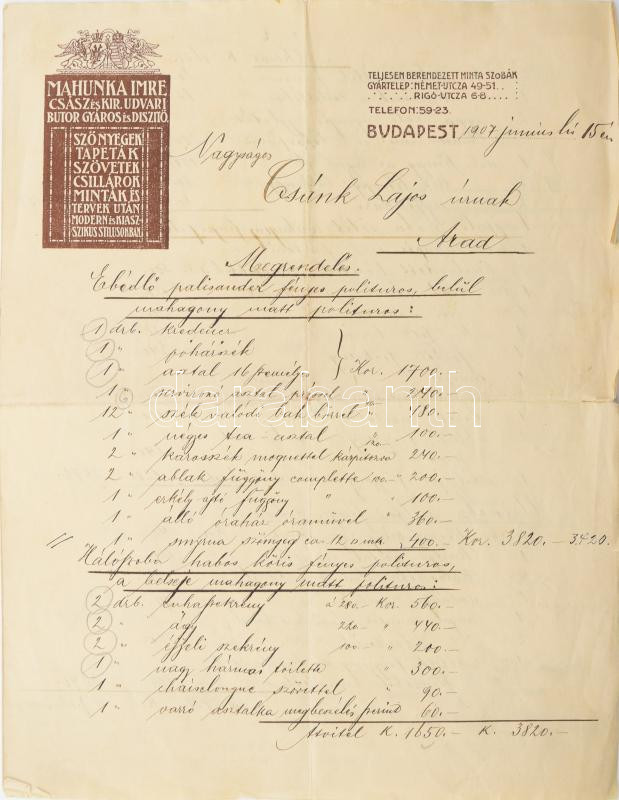 MAHUNKA IMRE
CSÁSZ ÉS KIR. UDVARI
BUTOR GYÁROS ÉS DISZITŐ.
SZŐNYEGEK
TAPETÁK
SZÖVETEK
CSILLÁROK
MINTÁK ÉS
TERVEK UTÁN
MODERN és KLASZ-
SZIKUS STILUSOKBAN.
TELJESEN BERENDEZETT MINTA SZOBÁK
GYÁRTELEP: NÉMET-UTCZA 49-51.
RIGÓ-UTCZA 6-8
TELEFON: 59-23.
BUDAPEST, 1907 június hó 15 én
Nagyságos
Csúnk Lajos úrnak
Arad
Megrendelés.
Ebédlő palisander fényes polituros, belül
mahagony matt polituros:
1 drb. kredenc
1 " pohárszék
1 " asztal 16 személyes Kor. 1700.-
1 " asztal " 240.-
12 " szék valódi bőrrel " 180.-
1 " négyes tea-asztal " 100.-
2 " karosszék moquettel kárpitozva 120 240.-
2 " ablak függöny complette 100.- " 200.-
1 " erkély ajtó függöny " " 100.-
1 " álló óraház óraművel " 360.-
1 " smyrna szőnyeg ca 12 400.- Kor. 3820.- 3420.-
Hálószoba habos kőris fényes polituros,
a belseje mahagony matt polituros:
2 drb. ruhaszekrény á 280.- Kor. 560.-
2 " ágy 220.- " 440.-
2 " éjjeli szekrény 100.- " 200.-
1 " nagy hármas toilette " 300.-
1 " chaiselongue szövettel " 90.-
1 " varró asztalka megbeszélés szerint 60.-
Átvitel K. 1650.- K. 3820.-
darabanth